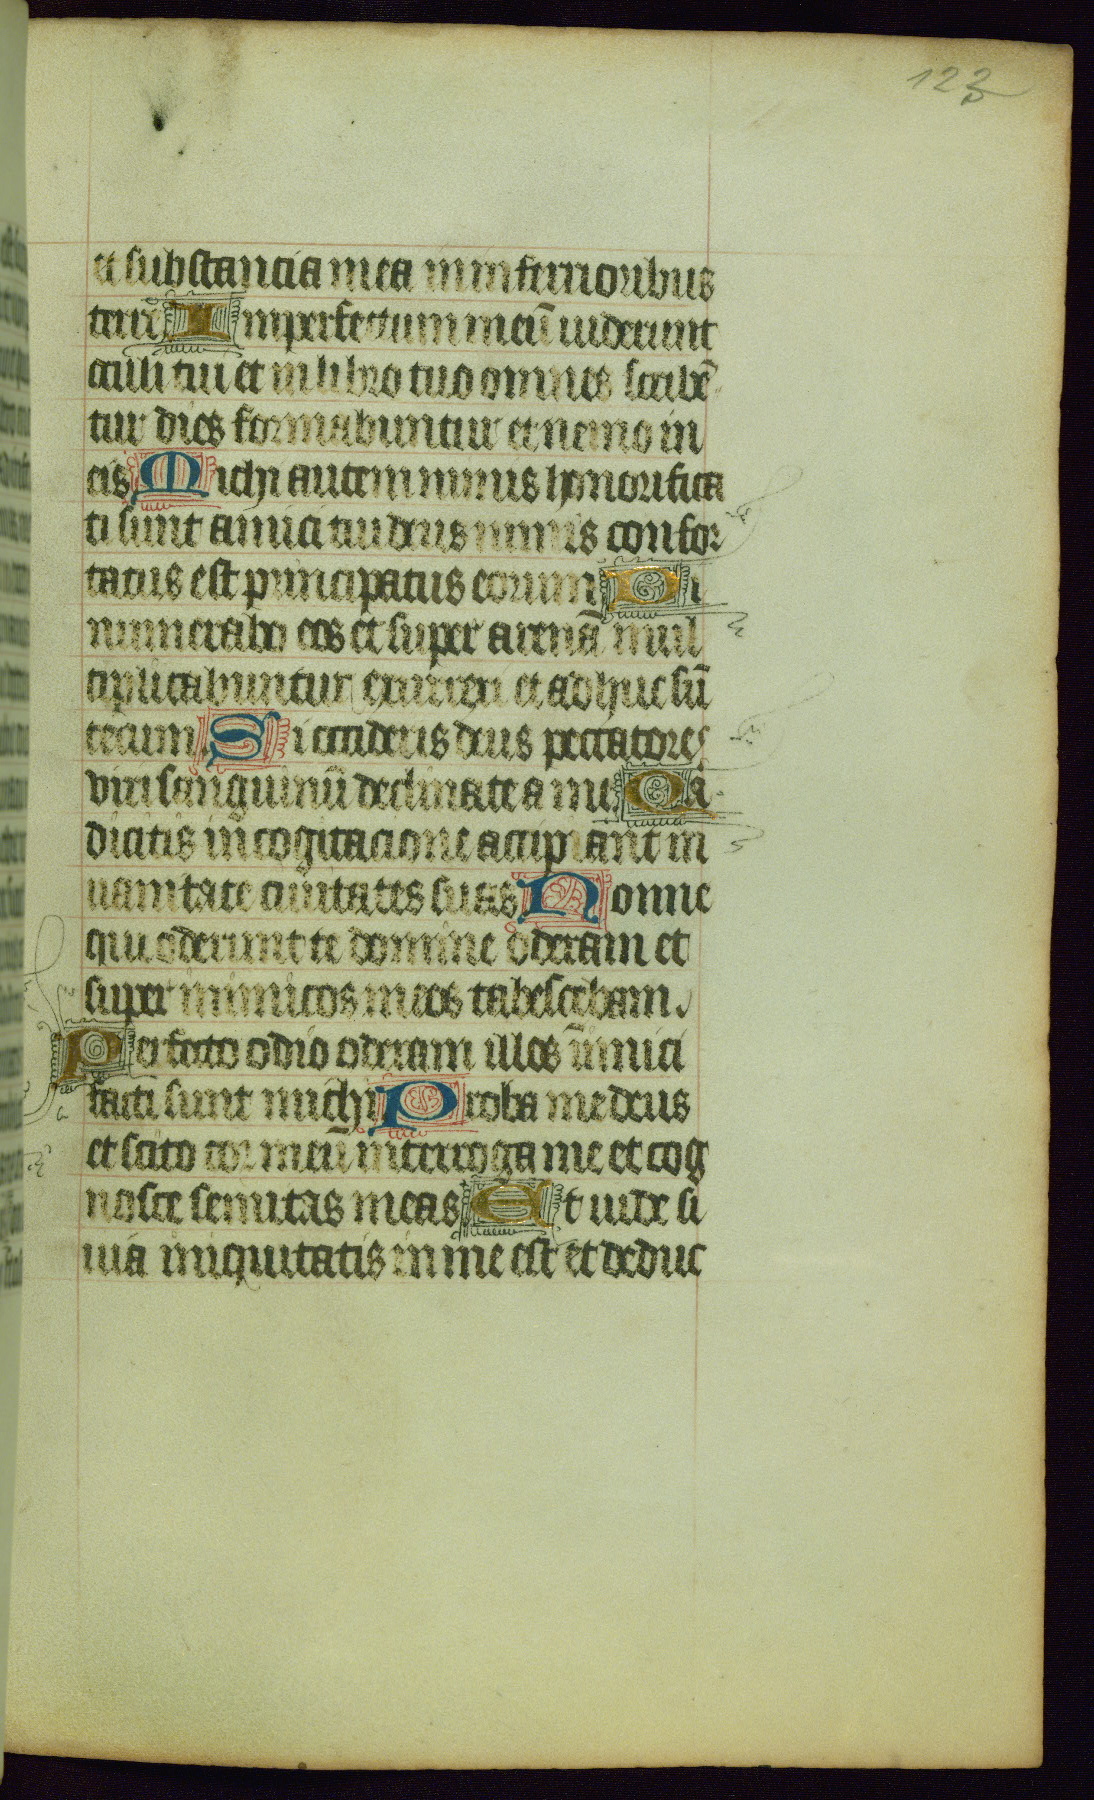 123
et substancia mea in inferrioribus
terre Imperfectum meū uiderunt
occuli tui et in libro tuo omnes scribē
tur dies formabuntur et nemo in
eis Michi autem nimis honorifica
ti sunt amici tui deus nimis confor
tatus est principatus eorum Di
numerabo eos et super arenā mul
tiplicabuntur exurrexi et adhuc sū
tecum Si occideris deus peccatores
viri sanguinū declinate a me Qa
dicitis in cogitacione accipiant in
uanitate ciuitates suas Nonne
qui oderunt te domine oderam et
super inimicos meos tabescebam
Perfecto odio oderam illos inimici
facti sunt michi Proba me deus
et scito cor meū interroga me et cog
nosce semitas meas Et uide si
uia iniquitatis in me est et deduc